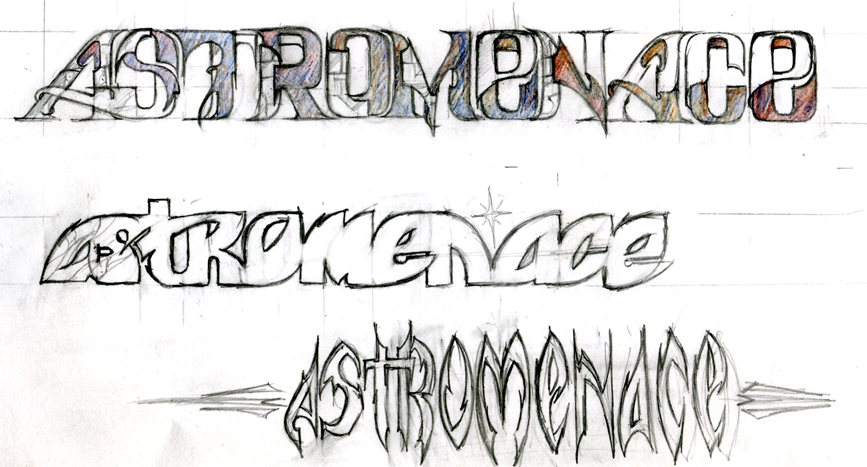 ASTROMENACE
AstROmenace
ASTROMENACE